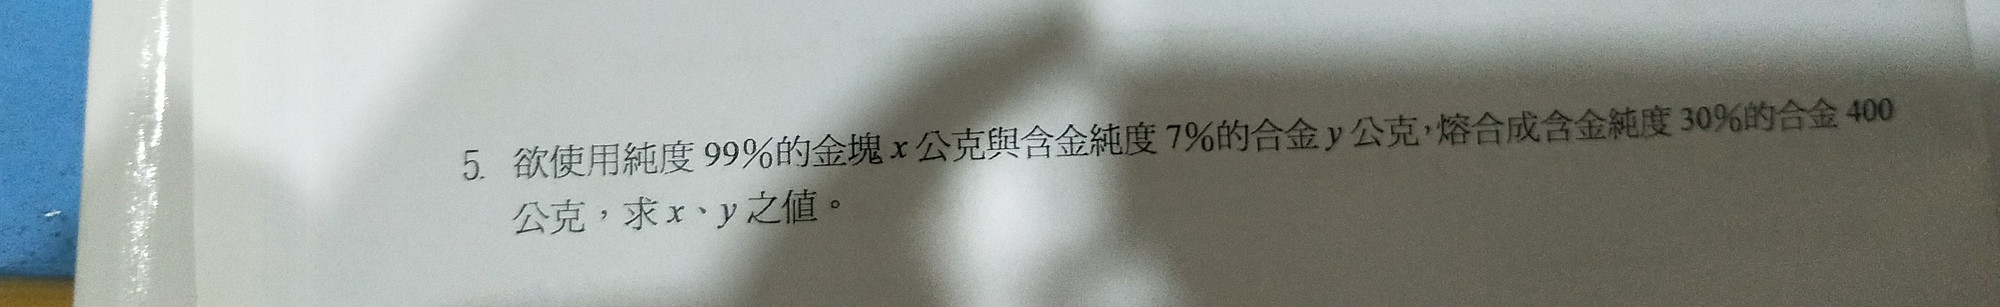 5. 欲使用純度 99%的金塊 x 公克與含金純度 7%的合金 y 公克，熔合成含金純度 30%的合金 400
公克，求 x、y 之值。